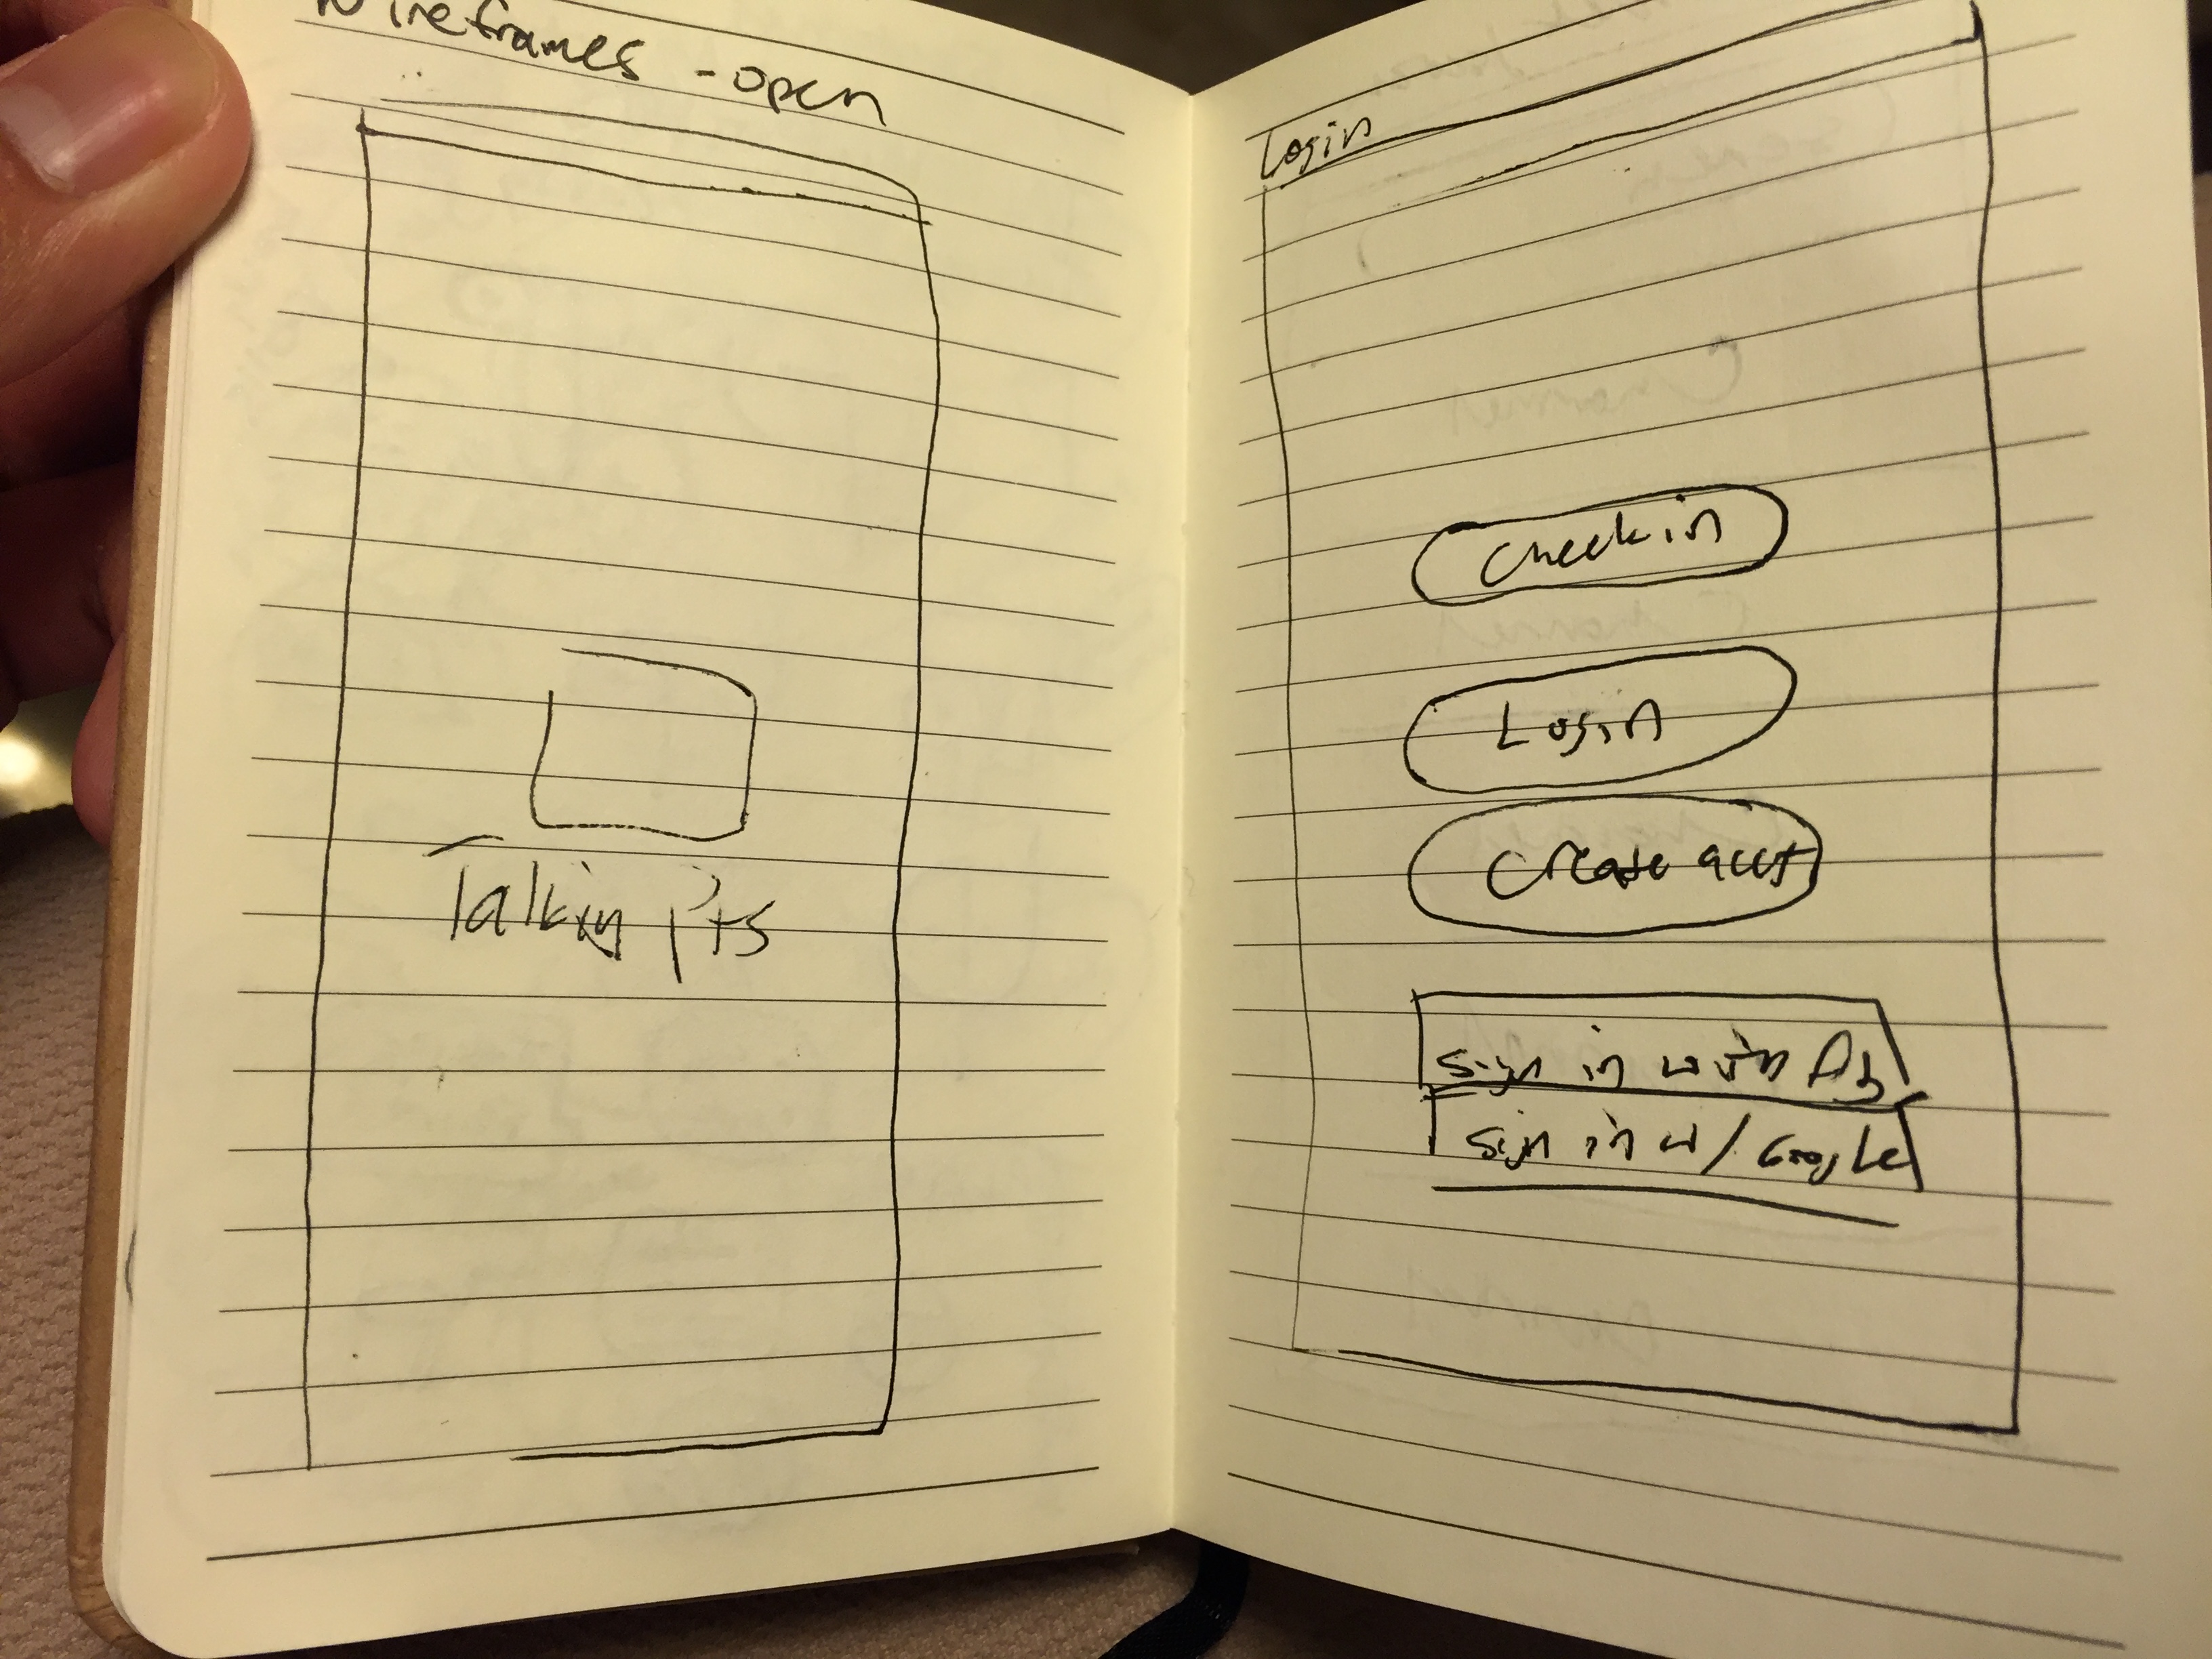 Wireframes - open
Talking Pts
Login
Check in
Login
Create acct
Sign in with
Sign in w/ Google